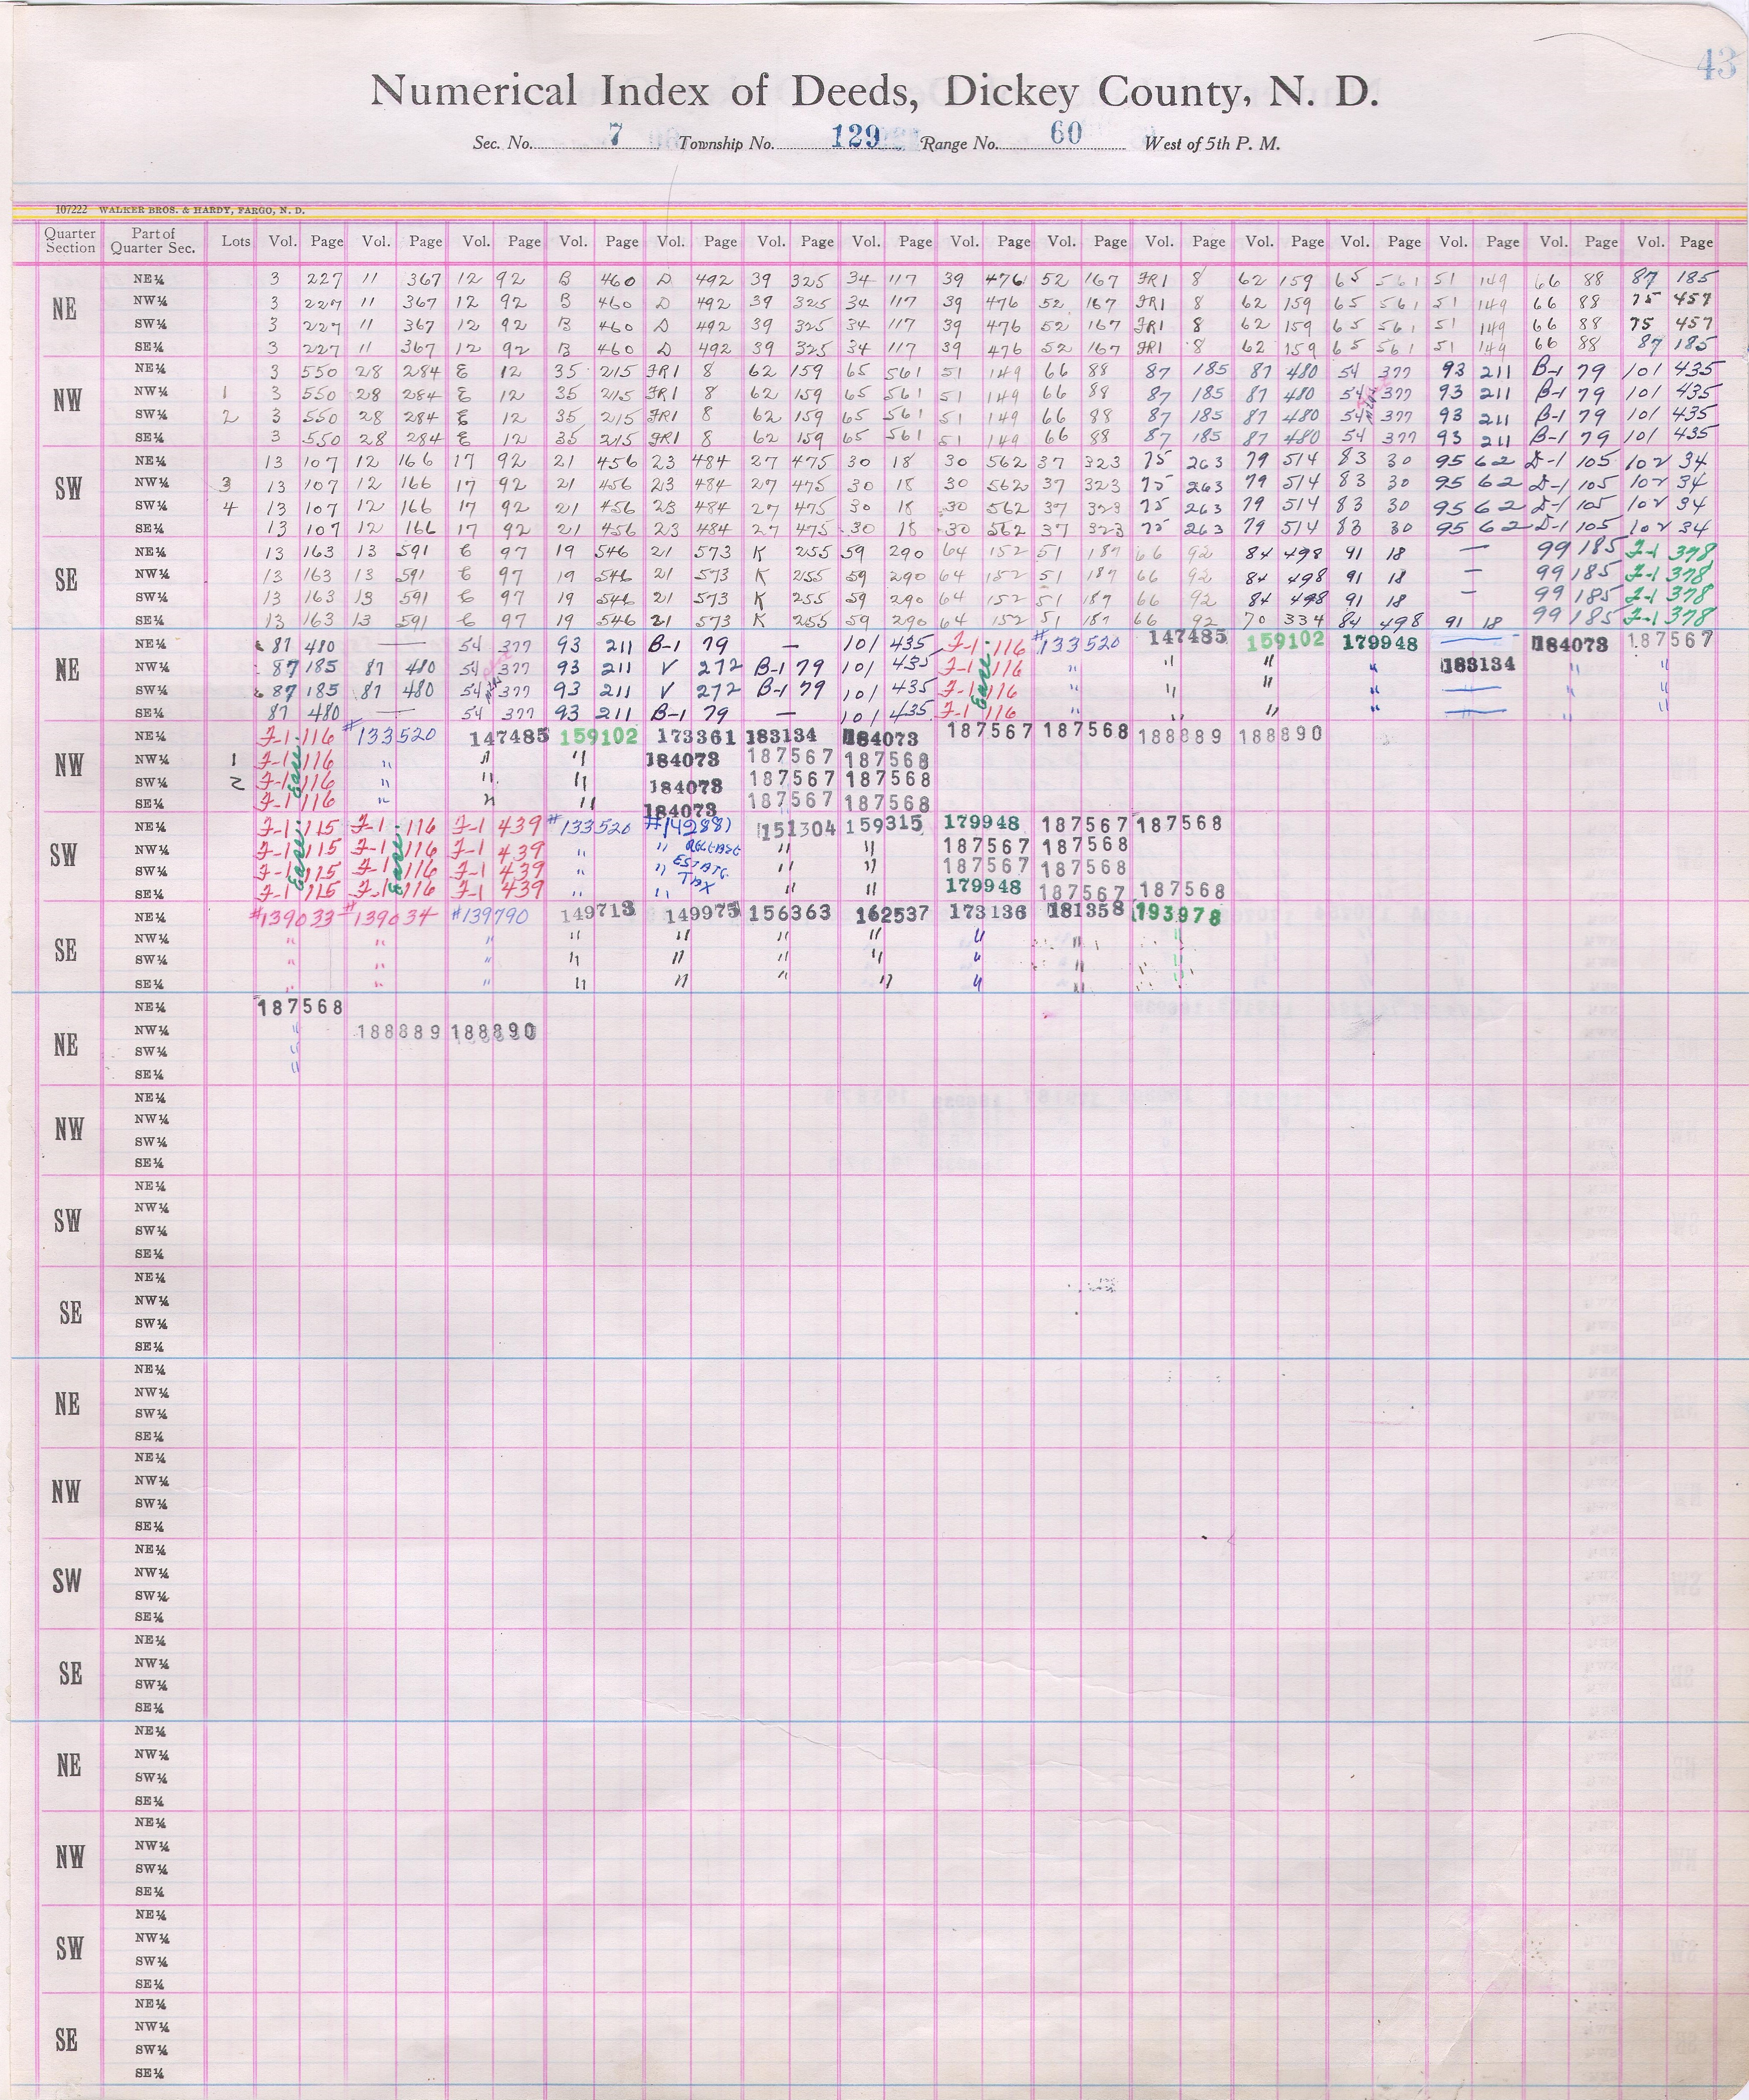 43
Numerical Index of Deeds, Dickey County, N. D.
Sec. No. 7 Township No. 129 Range No. 60 West of 5th P. M.
107222 WALKER BROS. & HARDY, FARGO, N. D.
Quarter Section Part of Quarter Sec. Lots Vol. Page Vol. Page Vol. Page Vol. Page Vol. Page Vol. Page Vol. Page Vol. Page Vol. Page Vol. Page Vol. Page Vol. Page Vol. Page Vol. Page Vol. Page
NE NE¼ 3 227 11 367 12 92 B 460 D 492 39 325 34 117 39 476 52 167 FR1 8 62 159 65 561 51 149 66 88 87 185
NW¼ 3 227 11 367 12 92 B 460 D 492 39 325 34 117 39 476 52 167 FR1 8 62 159 65 561 51 149 66 88 75 457
SW¼ 3 227 11 367 12 92 B 460 D 492 39 325 34 117 39 476 52 167 FR1 8 62 159 65 561 51 149 66 88 75 457
SE¼ 3 227 11 367 12 92 B 460 D 492 39 325 34 117 39 476 52 167 FR1 8 62 159 65 561 51 149 66 88 87 185
NW NE¼ 3 550 28 284 E 12 35 215 FR1 8 62 159 65 561 51 149 66 88 87 185 87 480 54 377 93 211 B-1 79 101 435
NW¼ 1 3 550 28 284 E 12 35 215 FR1 8 62 159 65 561 51 149 66 88 87 185 87 480 54 377 93 211 B-1 79 101 435
SW¼ 2 3 550 28 284 E 12 35 215 FR1 8 62 159 65 561 51 149 66 88 87 185 87 480 54 377 93 211 B-1 79 101 435
SE¼ 3 550 28 284 E 12 35 215 FR1 8 62 159 65 561 51 149 66 88 87 185 87 480 54 377 93 211 B-1 79 101 435
SW NE¼ 13 107 12 166 17 92 21 456 23 484 27 475 30 18 30 562 37 323 75 263 79 514 83 30 95 62 D-1 105 102 34
NW¼ 3 13 107 12 166 17 92 21 456 23 484 27 475 30 18 30 562 37 323 75 263 79 514 83 30 95 62 D-1 105 102 34
SW¼ 4 13 107 12 166 17 92 21 456 23 484 27 475 30 18 30 562 37 323 75 263 79 514 83 30 95 62 D-1 105 102 34
SE¼ 13 107 12 166 17 92 21 456 23 484 27 475 30 18 30 562 37 323 75 263 79 514 83 30 95 62 D-1 105 102 34
SE NE¼ 13 163 13 591 E 97 19 546 21 573 K 255 59 290 64 152 51 187 66 92 84 498 91 18 — 99 185 F-1 378
NW¼ 13 163 13 591 E 97 19 546 21 573 K 255 59 290 64 152 51 187 66 92 84 498 91 18 — 99 185 F-1 378
SW¼ 13 163 13 591 E 97 19 546 21 573 K 255 59 290 64 152 51 187 66 92 84 498 91 18 — 99 185 F-1 378
SE¼ 13 163 13 591 E 97 19 546 21 573 K 255 59 290 64 152 51 187 66 92 70 334 84 498 91 18 99 185 F-1 378
NE NE¼ 87 480 — 54 377 93 211 B-1 79 — 101 435 F-1 116 #133520 147485 159102 179948 — 184073 187567
NW¼ 87 185 87 480 54 377 93 211 V 272 B-1 79 101 435 F-1 116 " " " " 183134 " "
SW¼ 87 185 87 480 54 377 93 211 V 272 B-1 79 101 435 F-1 116 " " " " — " "
SE¼ 87 480 — 54 377 93 211 B-1 79 — 101 435 F-1 116 " " " " — " "
Ease.
NW NE¼ F-1 116 #133520 147485 159102 173361 183134 184073 187567 187568 188889 188890
NW¼ 1 F-1 116 " " " 184073 187567 187568
SW¼ 2 F-1 116 " " " 184073 187567 187568
SE¼ F-1 116 " " " 184073 187567 187568
Ease.
SW NE¼ F-1 115 F-1 116 F-1 439 #133520 #142881 151304 159315 179948 187567 187568
NW¼ F-1 115 F-1 116 F-1 439 " " RELEASE " " 187567 187568
SW¼ F-1 115 F-1 116 F-1 439 " " ESTATE " " 187567 187568
SE¼ F-1 115 F-1 116 F-1 439 " " TAX " " 179948 187567 187568
Ease. Ease.
SE NE¼ #139033 #139034 #139790 149713 149975 156363 162537 173136 181358 193978
NW¼ " " " " " " " " " "
SW¼ " " " " " " " " " "
SE¼ " " " " " " " " " "
NE NE¼ 187568
NW¼ " 188889 188890
SW¼ "
SE¼ "
NW NE¼
NW¼
SW¼
SE¼
SW NE¼
NW¼
SW¼
SE¼
SE NE¼
NW¼
SW¼
SE¼
NE NE¼
NW¼
SW¼
SE¼
NW NE¼
NW¼
SW¼
SE¼
SW NE¼
NW¼
SW¼
SE¼
SE NE¼
NW¼
SW¼
SE¼
NE NE¼
NW¼
SW¼
SE¼
NW NE¼
NW¼
SW¼
SE¼
SW NE¼
NW¼
SW¼
SE¼
SE NE¼
NW¼
SW¼
SE¼